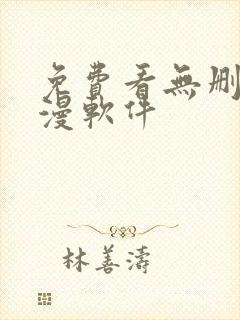 免費看無刪
漫軟件
林善濤